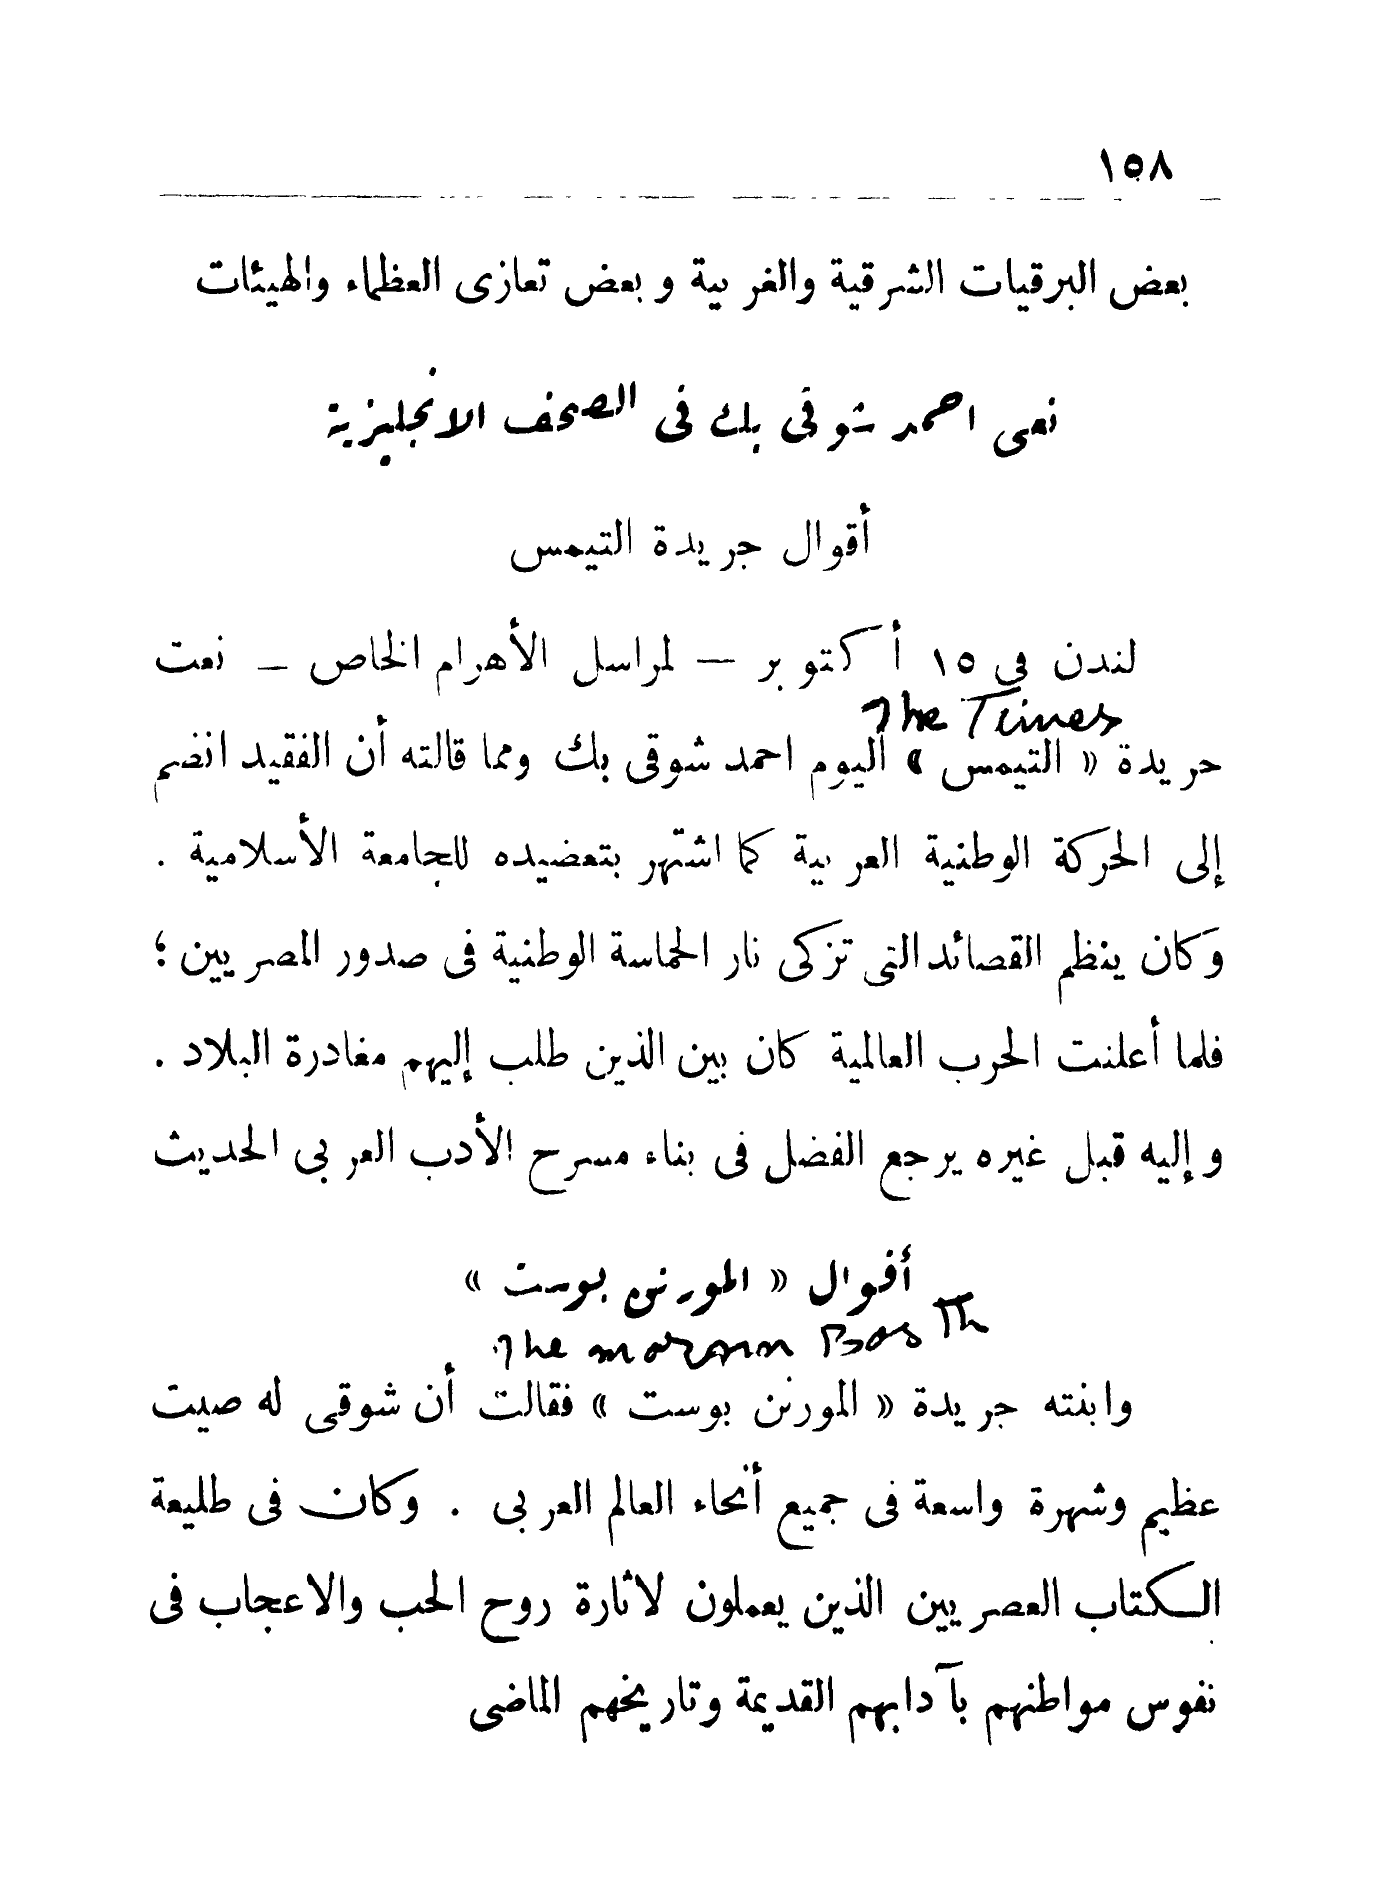 ١٥٨
بعض البرقيات الشرقية والغربية وبعض تعازى العظماء والهيئات
نعى احمد شوقى بك فى الصحف الانجليزية
أقوال جريدة التيمس
لندن فى ١٥ أكتوبر — لمراسل الأهرام الخاص — نعت
The Times
جريدة « التيمس » اليوم احمد شوقى بك ومما قالته أن الفقيد انضم
إلى الحركة الوطنية العربية كما اشتهر بتعضيده للجامعة الأسلامية .
وكان ينظم القصائد التى تزكى نار الحماسة الوطنية فى صدور المصريين ؛
فلما أعلنت الحرب العالمية كان بين الذين طلب إليهم مغادرة البلاد .
وإليه قبل غيره يرجع الفضل فى بناء مسرح الأدب العربى الحديث
أقوال « المورنن بوست »
The Posth
وابنته جريدة « المورنن بوست » فقالت أن شوقى له صيت
عظيم وشهرة واسعة فى جميع أنحاء العالم العربى . وكان فى طليعة
الكتاب العصريين الذين يعملون لاثارة روح الحب والاعجاب فى
نفوس مواطنهم بآدابهم القديمة وتاريخهم الماضى